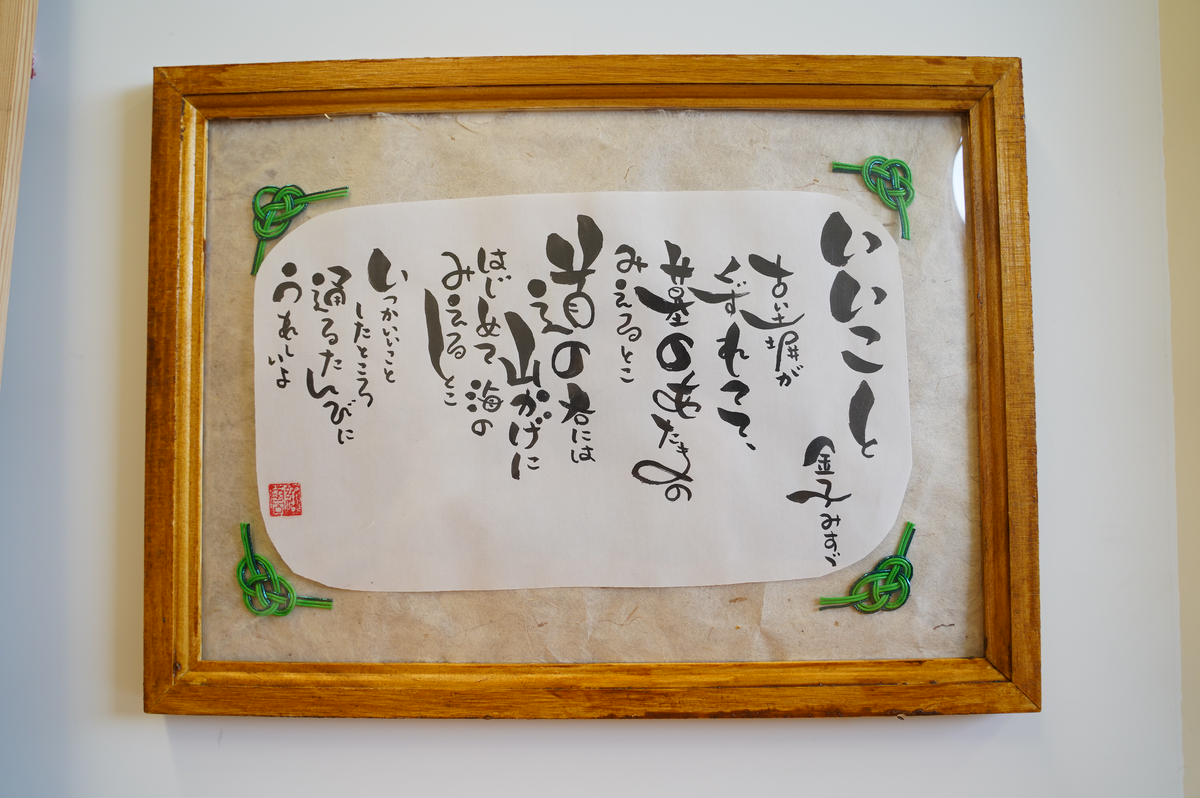 いいこと
金子みすゞ
古い土塀が
くずれてて、
墓のあたまの
みえるとこ
道の右には
山かげに
はじめて海の
みえるとこ
いつかいいこと
したところ
通るたんびに
うれしいよ